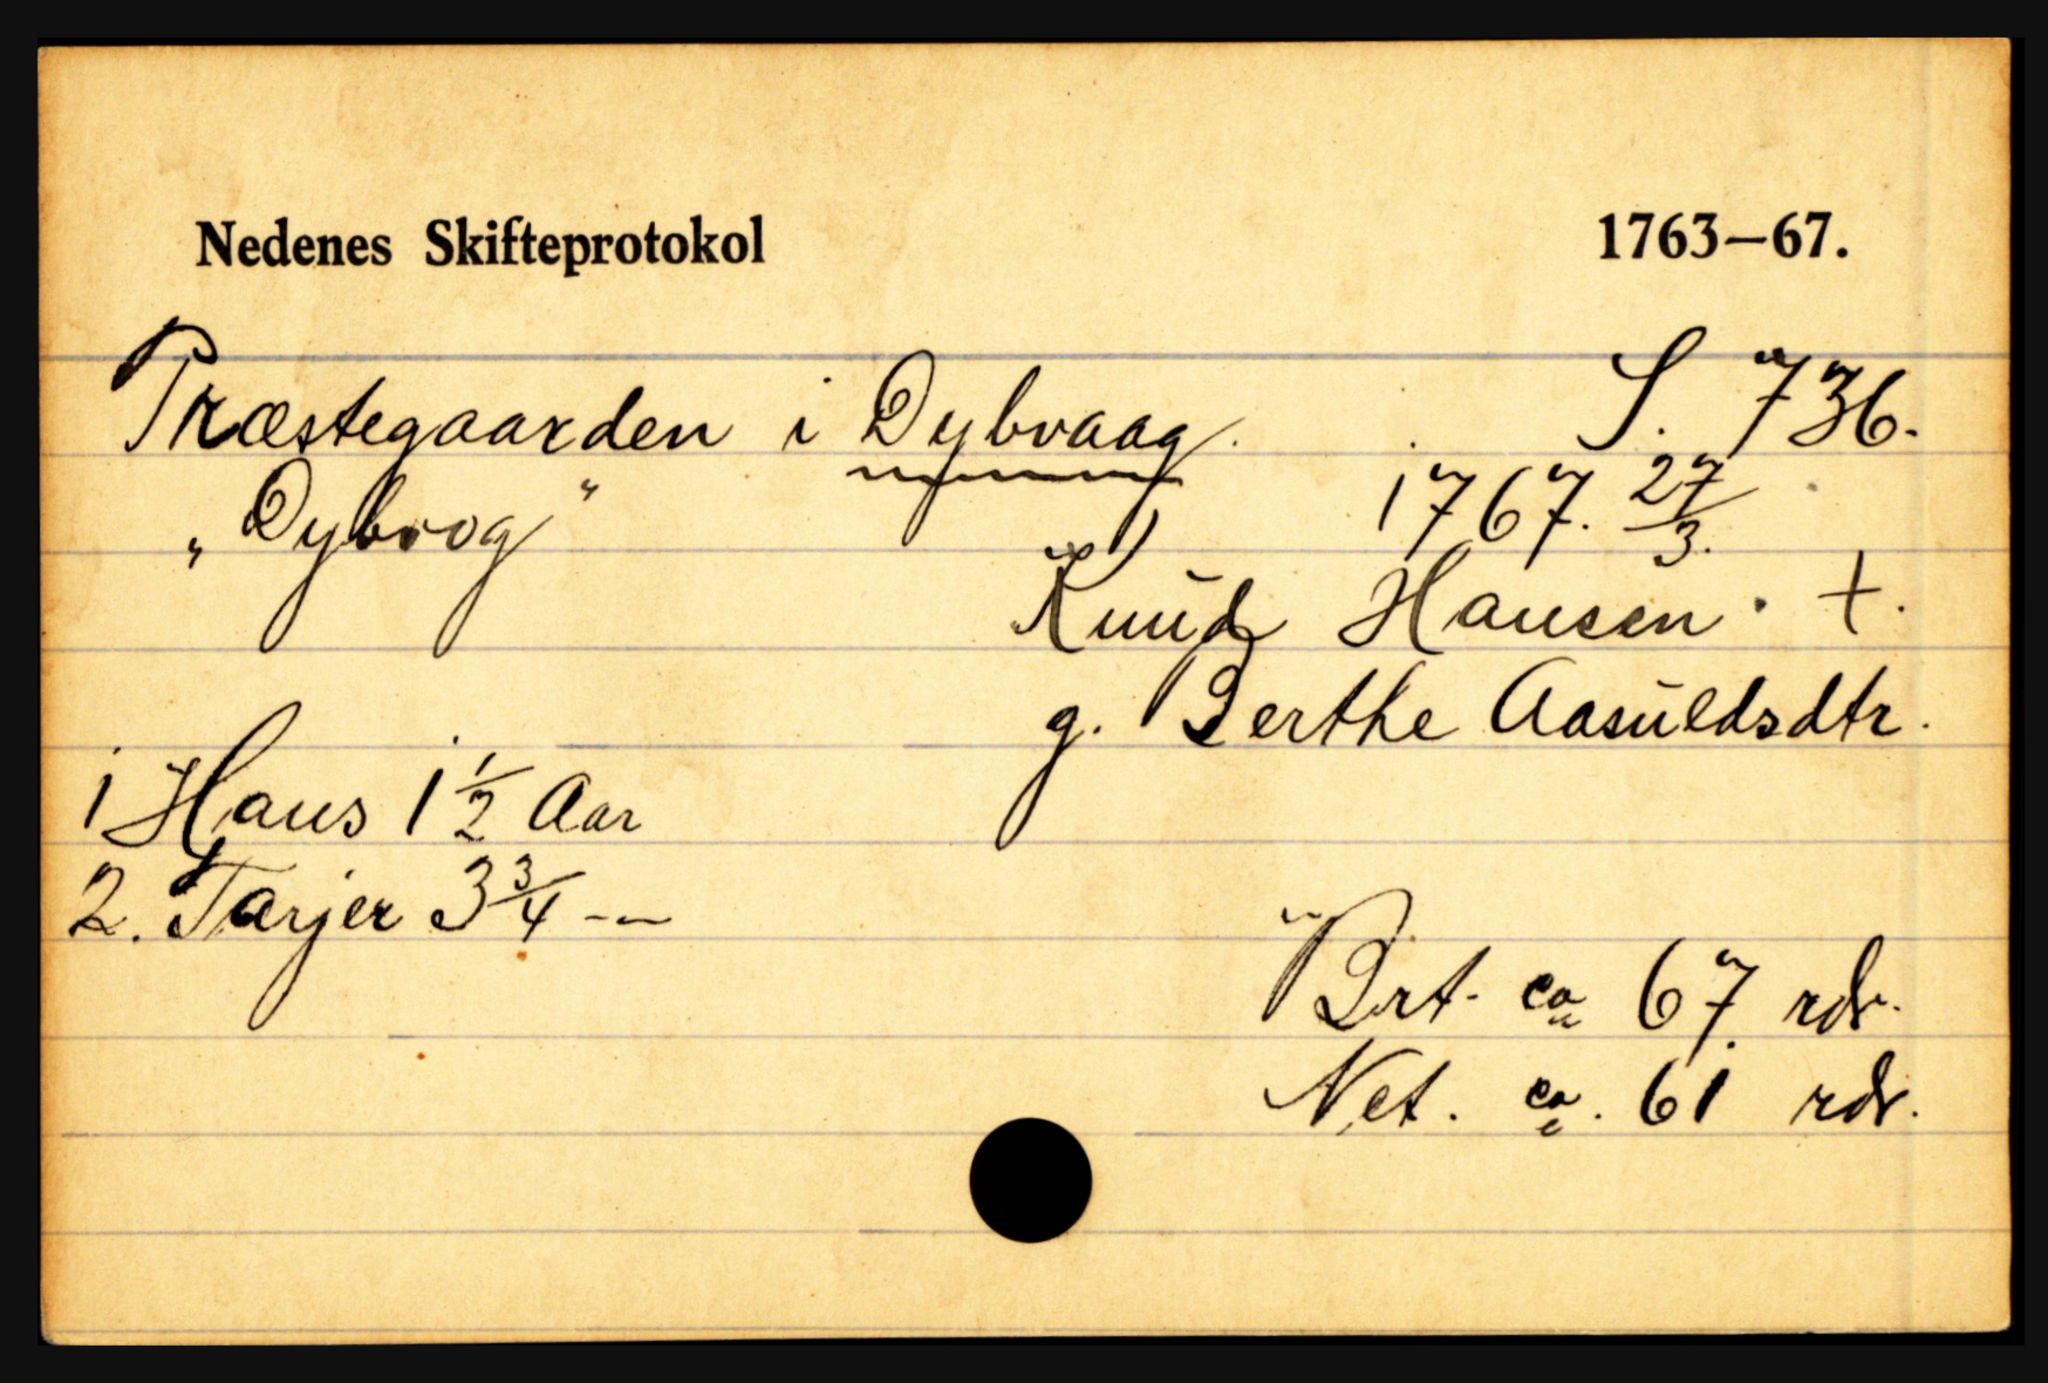 Nedenes Skifteprotokol 1763—67.
Præstegaarden i Dybvaag. S. 736.
„Dybvog" 1767. 27/3.
Knud Hansen. +.
g. Berthe Aasuldsdtr.
1 Hans 1 1/2 Aar
2. Tarjer 3 3/4 -—
Brt. ca 67 rdr.
Net. ca. 61 rdr.